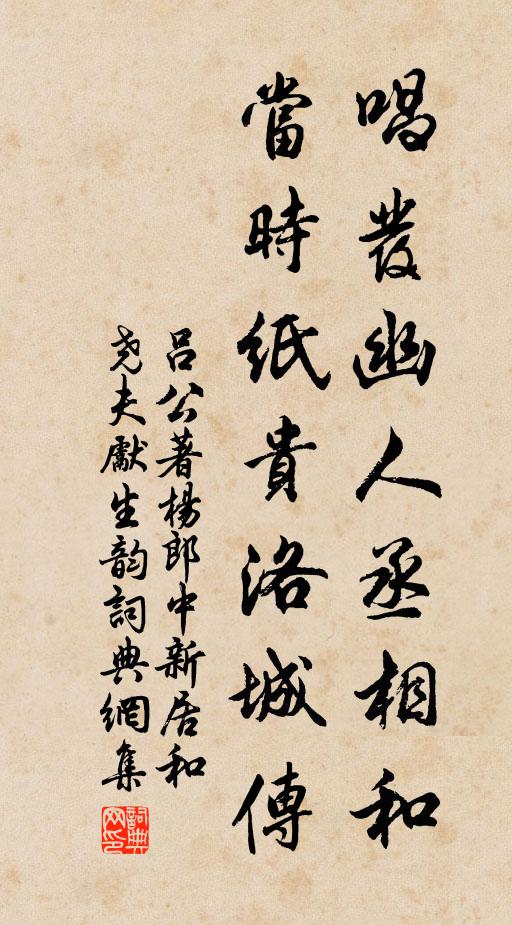 唱發幽人丞相和
當時紙貴洛城傳
呂公著楊郎中新居和
堯夫獻生韵詞典網集
詞典网印